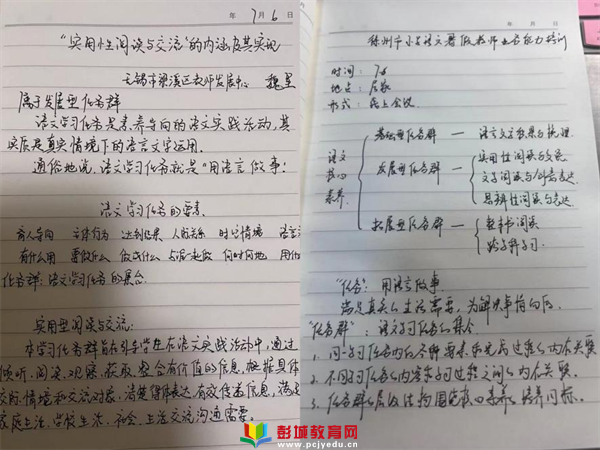 年 7月 6日
"实用性阅读与交流"的内涵及其实现
无锡市梁溪区教师发展中心 魏星
属于发展型任务群
语文学习任务是素养导向的语文实践活动,其
实质是真实情境下的语言文字运用。
通俗地说,语文学习任务就是"用语言做事"
语文学习任务的要素
育人导向 文体行为 达到结果 人际关系 时空情境 语言
有什么用 要做什么 做成什么 与谁一起做 何时何地 用什
任务群:语文学习任务的集合
实用型阅读与交流:
本学习任务群旨在引导学生在语文实践活动中,通过
倾听、阅读、观察,获取、整合有价值的信息,根据具体
交际情境和交流对象,清楚得体表达,有效传递信息,满足
家庭生活、学校生活、社会生活交流沟通需要。
年 月 日
徐州市小学语文暑假教师业务能力培训
时间:7.6
地点:居家
形式:线上会议
语文
核心
素养
基础型任务群 — 语言文字积累与梳理
发展型任务群 — 实用性阅读与交流
文学阅读与创意表达
思辨性阅读与表达
拓展型任务群 — 整本书阅读
跨学科学习
"任务":用语言做事
"任务群":语文学习任务的集合
1.同一学习任务内
2.不同学习任务
3.任务群
彭城教育网
www.pcjyedu.cn